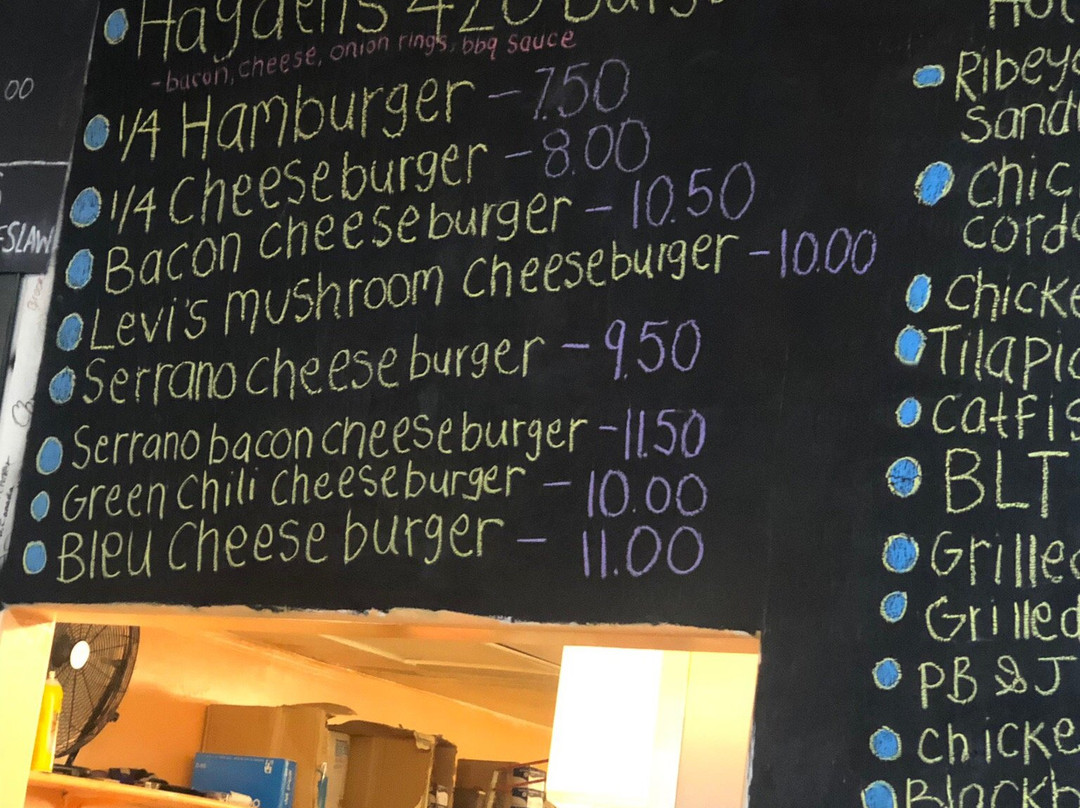 Haydens 420 Burg
-bacon, cheese, onion rings, bbq sauce
1/4 Hamburger - 7.50
1/4 Cheeseburger - 8.00
Bacon cheeseburger - 10.50
Levi's mushroom cheeseburger - 10.00
Serrano cheeseburger - 9.50
Serrano bacon cheeseburger - 11.50
Green chili cheeseburger - 10.00
Bleu cheese burger - 11.00
00
SLAW
Hot
Ribeye
Sand
Chic
cord
Chicke
Tilapia
Catfis
BLT
Grilled
Grilled
PB & J
chicke
Blackb